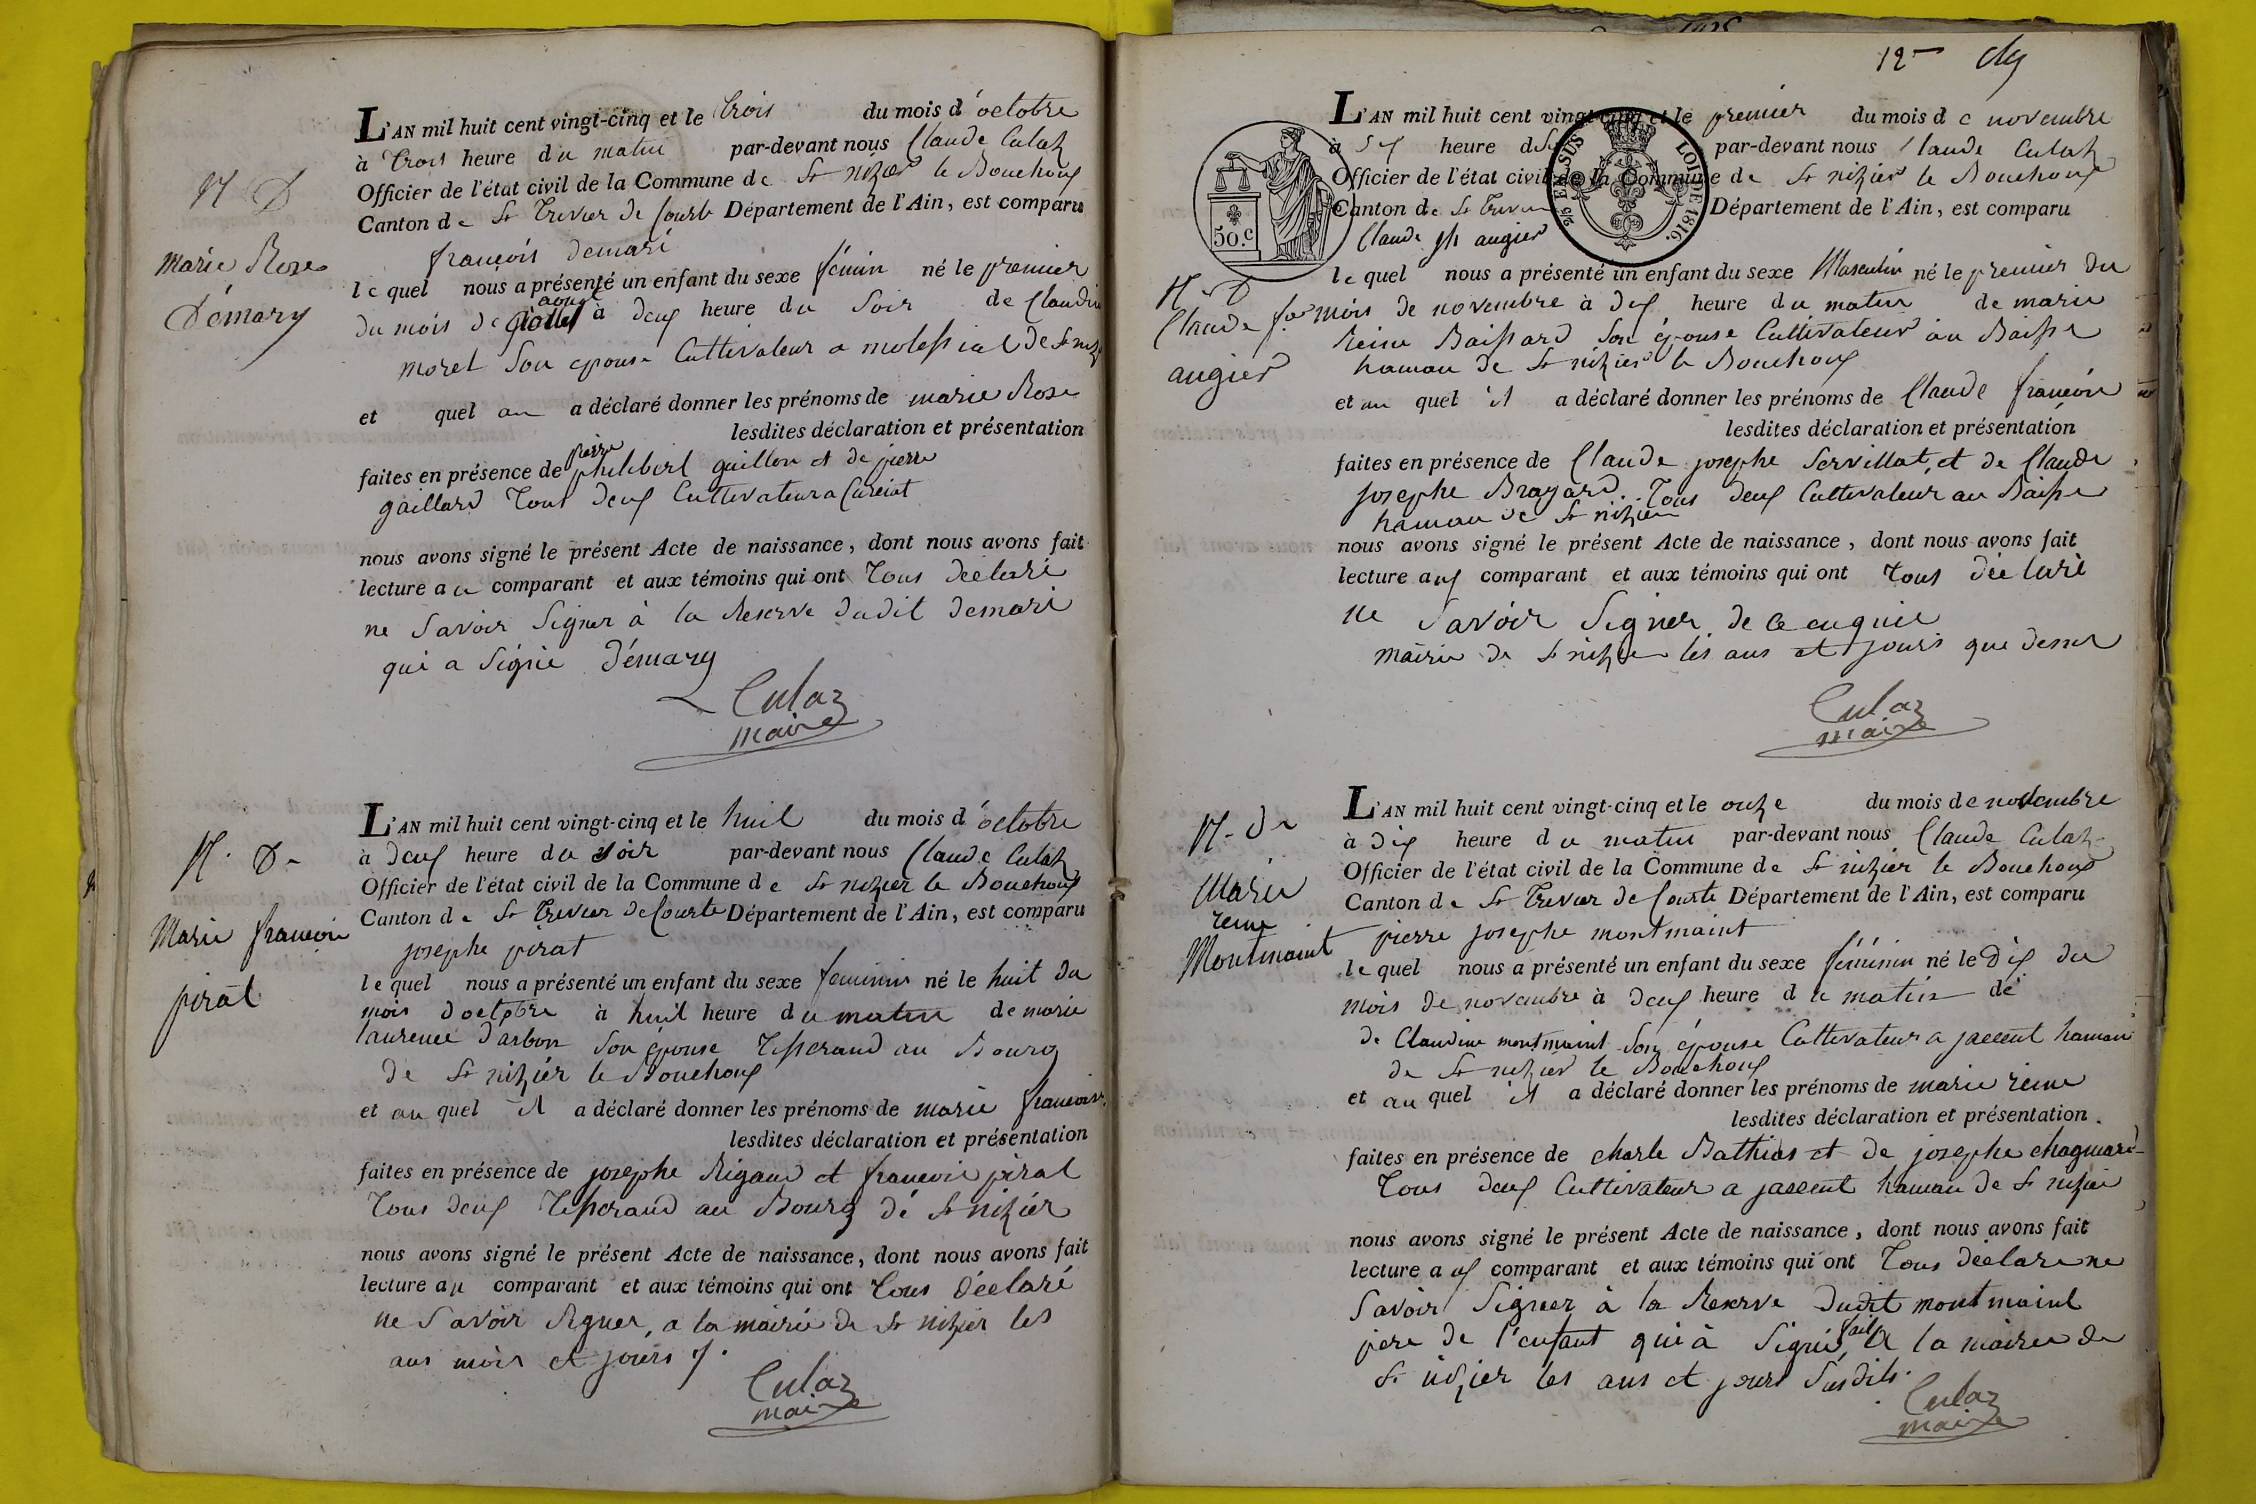 L'AN mil huit cent vingt-cinq et le trois du mois d'octobre
à trois heure du matin par-devant nous Claude Culaz
Officier de l'état civil de la Commune de St nizier le Bouchoux
Canton de St Trivier de Courte Département de l'Ain, est comparu
françois demari
le quel nous a présenté un enfant du sexe fémin né le premier
du mois de à deux heure du soir de Claudine
morel Son epouse Cultivateur a molessiat de St niz
et quel au a déclaré donner les prénoms de marie Rose
lesdites déclaration et présentation
pierre
faites en présence de philibert guillon et de pierre
gaillard Tous deux Cultivateur a Curciat
nous avons signé le présent Acte de naissance, dont nous avons fait
lecture au comparant et aux témoins qui ont Tous declaré
ne Savoir Signer à la Reserve dudit demari
qui a Signé Démary
Culaz
maire
N D
marie Rose
Démary
L'AN mil huit cent vingt-cinq et le huit du mois d'octobre
à deux heure du soir par-devant nous Claude Culaz
Officier de l'état civil de la Commune de St nizier le Bouchoux
Canton de St Trivier de Courte Département de l'Ain, est comparu
josephe pirat
le quel nous a présenté un enfant du sexe feminin né le huit du
mois doctobre à huit heure du matin de marie
laurence darbon Son épouse Tisserand au Bourg
de St nizier le Bouchoux
et au quel il a déclaré donner les prénoms de marie francoise
lesdites déclaration et présentation
faites en présence de josephe Rigaud et francois pirat
Tous deux Tisserand au Bourg de St nizier
nous avons signé le présent Acte de naissance, dont nous avons fait
lecture au comparant et aux témoins qui ont Tous déclaré
ne Savoir Signer, a la mairie de St nizier les
ans mois et jours
Culaz
maire
N. D
Marie francoise
pirat
12
L'AN mil huit cent vingt-cinq et le premier du mois de novembre
à heure du par-devant nous Claude Culaz
Officier de l'état civil de la Commune de St nizier le Bouchoux
Canton de St Trivier Département de l'Ain, est comparu
Claude jh augier
le quel nous a présenté un enfant du sexe Masculin né le premier du
mois de novembre à dix heure du matin de marie
Reine Baissard Son épouse Cultivateur au Baisse
hamau de St nizier le Bouchoux
et au quel il a déclaré donner les prénoms de Claude francois
lesdites déclaration et présentation
faites en présence de Claude josephe Servillat, et de Claude
josephe Brayard Tous deux Cultivateur au Baisse
hamau de St nizier
nous avons signé le présent Acte de naissance, dont nous avons fait
lecture aux comparant et aux témoins qui ont Tous déclaré
ne Savoir Signer de ce enquis
mairie de St nizier les ans et jours que dessus
Culaz
maire
50.C
25 EN SUS
LOI DE 1816.
N. D
Claude fois
augier
L'AN mil huit cent vingt-cinq et le onze du mois de novembre
à dix heure du matin par-devant nous Claude Culaz
Officier de l'état civil de la Commune de St nizier le Bouchoux
Canton de St Trivier de Courte Département de l'Ain, est comparu
pierre josephe montmaint
le quel nous a présenté un enfant du sexe féminin né le dix du
mois de novembre à deux heure du matin de
de Claudine montmaint Son épouse Cultivateur a jassent hamau
de St nizier le Bouchoux
et au quel il a déclaré donner les prénoms de marie reine
lesdites déclaration et présentation
faites en présence de charle Mathias et de josephe chagnard
Tous deux Cultivateur a jassent hamau de St nizier
nous avons signé le présent Acte de naissance, dont nous avons fait
lecture aux comparant et aux témoins qui ont Tous déclare ne
Savoir Signer à la Reserve dudit montmaint
père de l'enfant qui à Signé, fait A la mairie de
St nizier les ans et jours Susdits.
Culaz
maire
N. de
Marie
reine
Montmaint